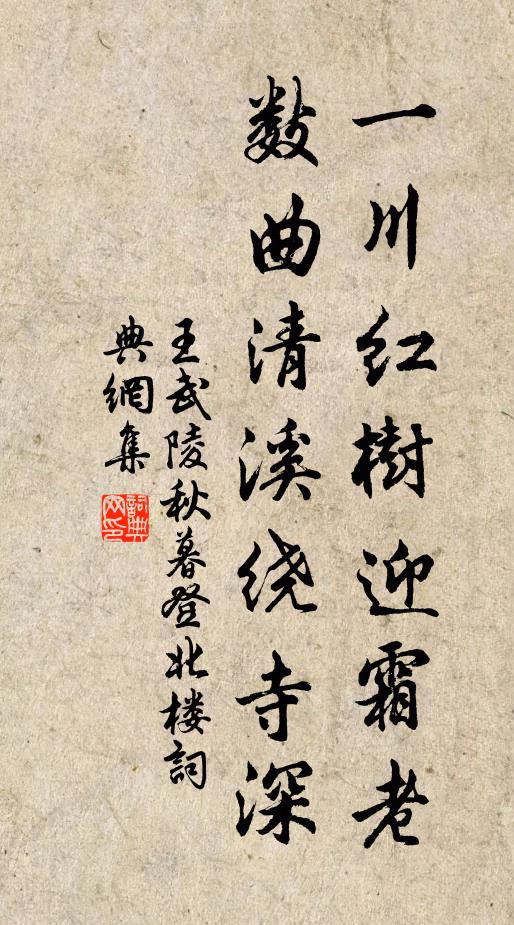 一川红樹迎霜老
数曲清溪绕寺深
王武陵秋暮登北楼詞
典網集
詞典网印